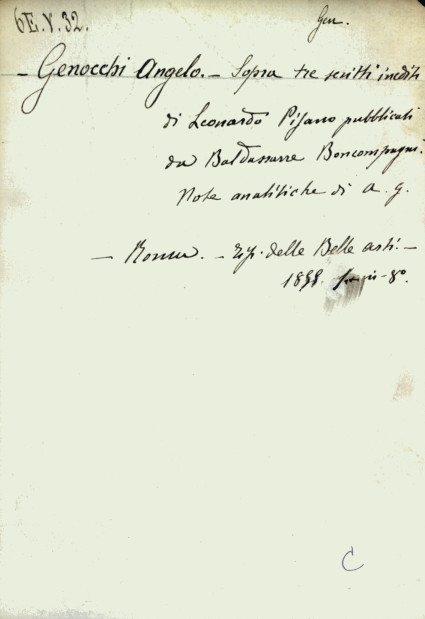 6E.V.32.
Gen.
- Genocchi Angelo. - Sopra tre scritti inediti
di Leonardo Pisano pubblicati
da Baldassarre Boncompagni.
Note analitiche di A. G.
- Roma. - Tip. delle Belle arti. -
1855. in-8º.
C